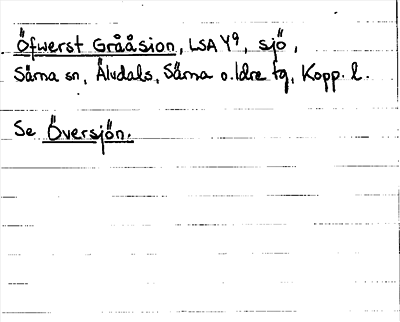 Öfwerst Grååsion, LSA Y9, sjö,
Särna sn, Älvdals, Särna o. Idre tg, Kopp. l.
Se Översjön.